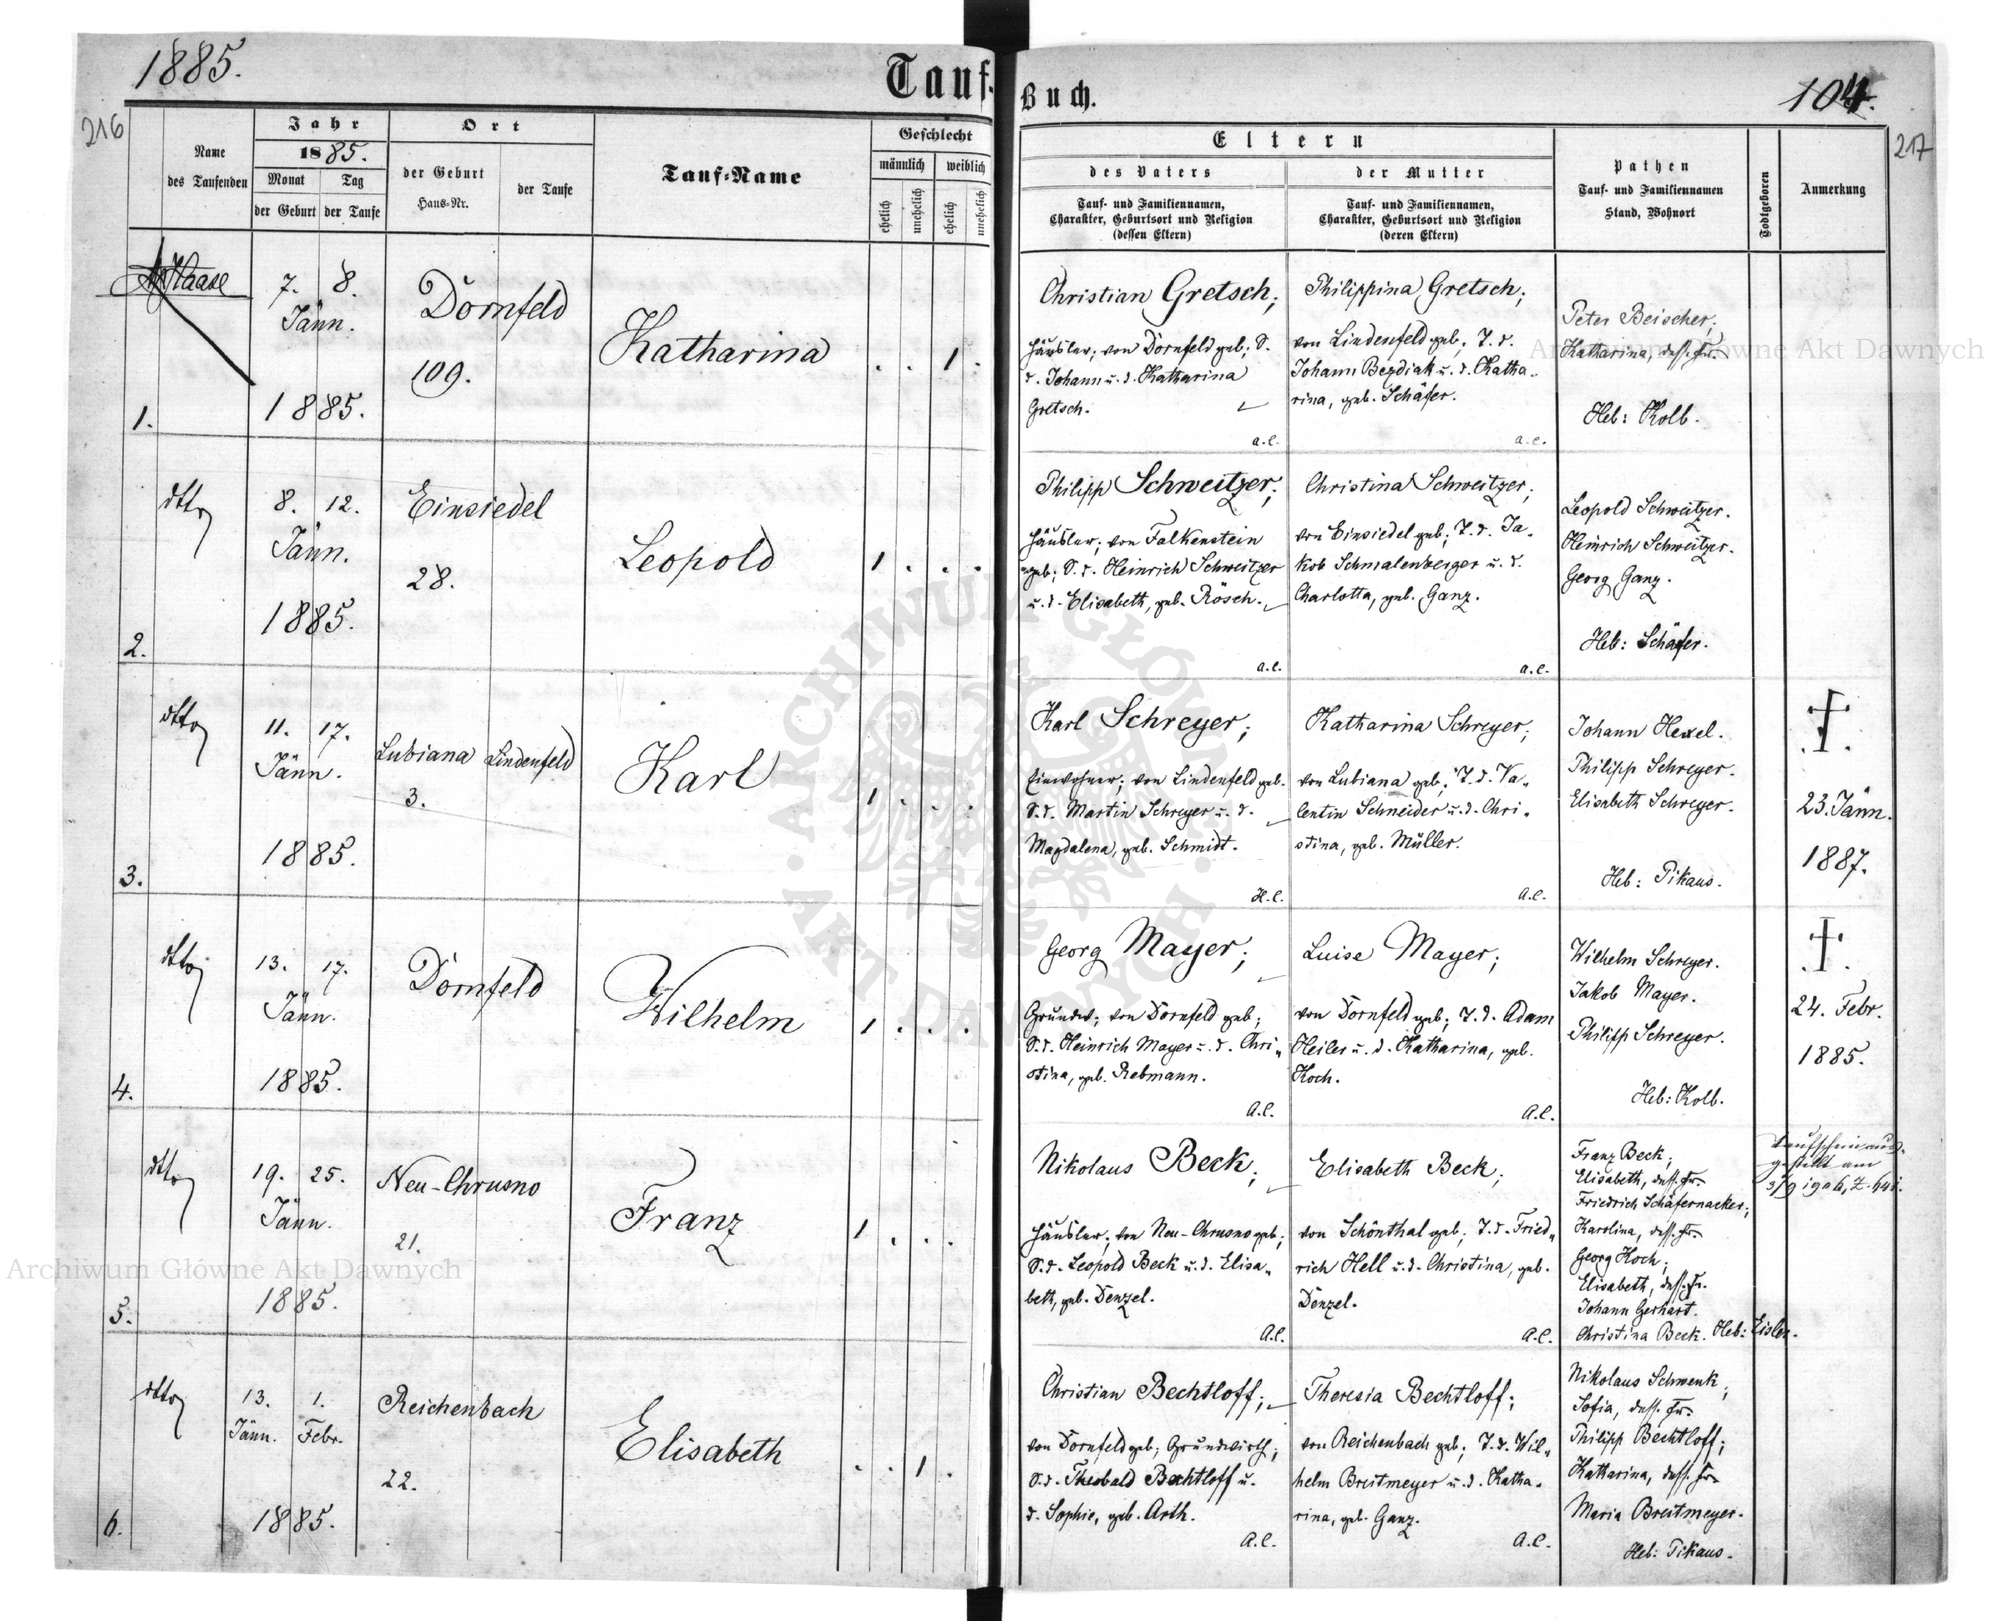 1885.
Tauf-Buch.
104.
216
217
Name
des Taufenden
Jahr
1885.
Monat Tag
der Geburt der Taufe
Ort
der Geburt
Haus-Nr.
der Taufe
Tauf-Name
Geschlecht
männlich weiblich
ehelich unehelich ehelich unehelich
Eltern
des Vaters
Tauf- und Familiennamen,
Charakter, Geburtsort und Religion
(dessen Eltern)
der Mutter
Tauf- und Familiennamen,
Charakter, Geburtsort und Religion
(deren Eltern)
Pathen
Tauf- und Familiennamen
Stand, Wohnort
Todtgeboren
Anmerkung
1.
Haase
7. 8.
Jänn.
1885.
Dornfeld
109.
Katharina
. . 1 .
Christian Gretsch;
Häusler; von Dornfeld geb; S.
d. Johann u. d. Katharina
Gretsch.
a.c.
Philippina Gretsch;
von Lindenfeld geb; T. d.
Johann Bezdiak u. d. Katha-
rina, geb. Schäfer.
a.c.
Peter Beischer;
Katharina, dess. Fr.
Heb: Kolb.
2.
dtto
8. 12.
Jänn.
1885.
Einsiedel
28.
Leopold
1 . . .
Philipp Schweitzer;
Häusler; von Falkenstein
geb; S. d. Heinrich Schweitzer
u. d. Elisabeth, geb. Rösch.
a.c.
Christina Schweitzer;
von Einsiedel geb; T. d. Ja-
kob Schmalenberger u. d.
Charlotta, geb. Ganz.
a.c.
Leopold Schweitzer.
Heinrich Schweitzer.
Georg Ganz.
Heb: Schäfer.
3.
dtto
11. 17.
Jänn.
1885.
Lubiana Lindenfeld
3.
Karl
1 . . .
Karl Schreyer;
Einwohner; von Lindenfeld geb.
S. d. Martin Schreyer u. d.
Magdalena, geb. Schmidt.
H.c.
Katharina Schreyer;
von Lubiana geb; T. d. Va-
lentin Schneider u. d. Chri-
stina, geb. Müller.
A.c.
Johann Hexel.
Philipp Schreyer.
Elisabeth Schreyer.
Heb: Pikaus.
23. Jänn.
1887.
4.
dtto
13. 17.
Jänn.
1885.
Dornfeld
Wilhelm
1 . . .
Georg Mayer;
Grundw; von Dornfeld geb;
S. d. Heinrich Mayer u. d. Chri-
stina, geb. Rebmann.
A.c.
Luise Mayer;
von Dornfeld geb; T. d. Adam
Heiler u. d. Katharina, geb.
Koch.
A.c.
Wilhelm Schreyer.
Jakob Mayer.
Philipp Schreyer.
Heb: Kolb.
24. Febr.
1885.
5.
dtto
19. 25.
Jänn.
1885.
Neu-Chrusno
21.
Franz
1 . . .
Nikolaus Beck;
Häusler; von Neu-Chrusno geb;
S. d. Leopold Beck u. d. Elisa-
beth, geb. Denzel.
A.c.
Elisabeth Beck;
von Schönthal geb; T. d. Fried-
rich Hell u. d. Christina, geb.
Denzel.
A.c.
Franz Beck;
Elisabeth, dess. Fr.
Friedrich Schäfernacker;
Karolina, dess. Fr.
Georg Koch;
Elisabeth, dess. Fr.
Johann Gerhart.
Christina Beck. Heb: Eisler.
Taufschein aus-
gestellt am
6.
dtto
13. 1.
Jänn. Febr.
1885.
Reichenbach
22.
Elisabeth
. . 1 .
Christian Bechtloff;
von Dornfeld geb; Grundwirth;
S. d. Theobald Bechtloff u.
d. Sophie, geb. Arth.
A.c.
Theresia Bechtloff;
von Reichenbach geb; T. d. Wil-
helm Breitmeyer u. d. Katha-
rina, geb. Ganz.
A.c.
Nikolaus Schwenk;
Sofia, dess. Fr.
Philipp Bechtloff;
Katharina, dess. Fr.
Maria Breitmeyer.
Heb: Pikaus.
Archiwum Główne Akt Dawnych
Archiwum Główne Akt Dawnych
ARCHIWUM GŁÓWNE AKT DAWNYCH